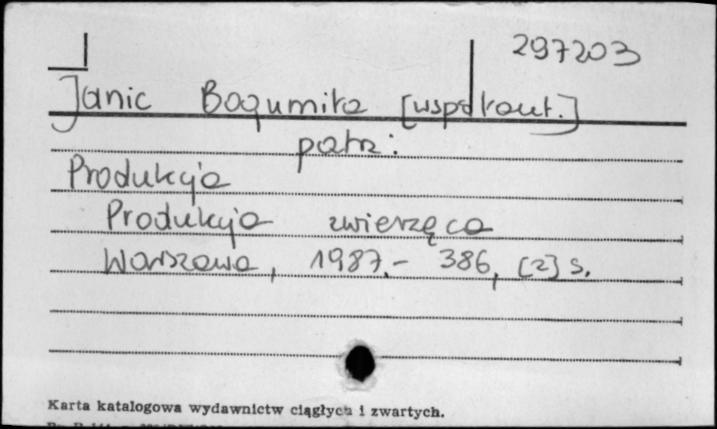 297203
Janic Bogumiła [współaut.]
patrz:
Produkcja
Produkcja zwierzęca
Warszawa, 1987.- 386, [2] s.
Karta katalogowa wydawnictw ciągłych i zwartych.